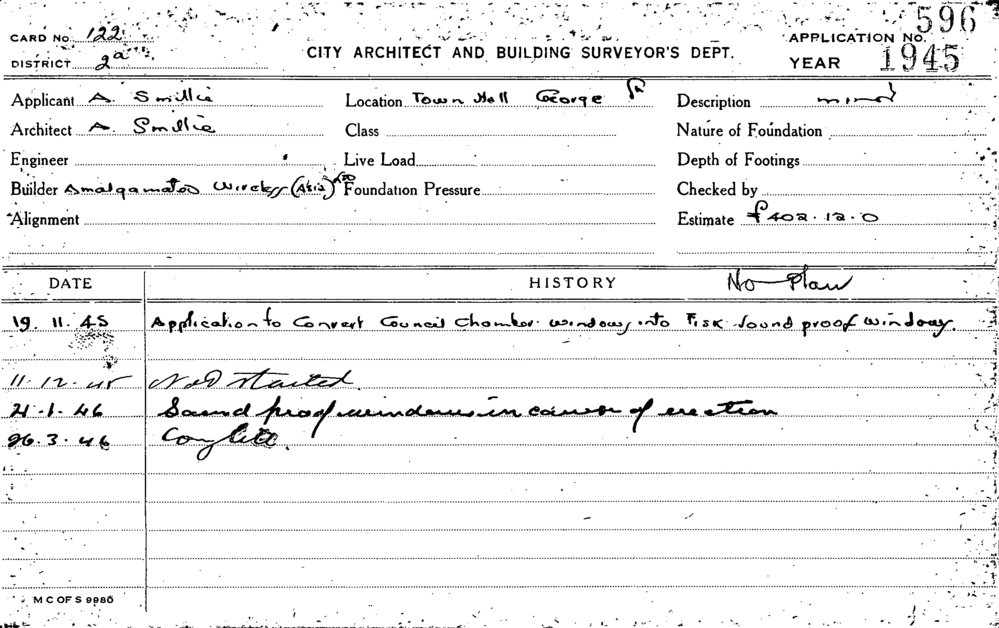 CARD No. 122
DISTRICT 2a
CITY ARCHITECT AND BUILDING SURVEYOR'S DEPT.
APPLICATION No. 596
YEAR 1945
Applicant A. Smillie Location Town Hall George St Description minor
Architect A. Smillie Class Nature of Foundation
Engineer Live Load Depth of Footings
Builder Amalgamated Wireless (A'sia) Foundation Pressure Checked by
Alignment Estimate £402.12.0
DATE HISTORY No Plan
19.11.45 Application to Convert Council Chamber windows into Fisk sound proof windows.
11.12.45 Not started.
21.1.46 Sound proof windows in course of erection
26.3.46 Complete.
M C OF S 9980